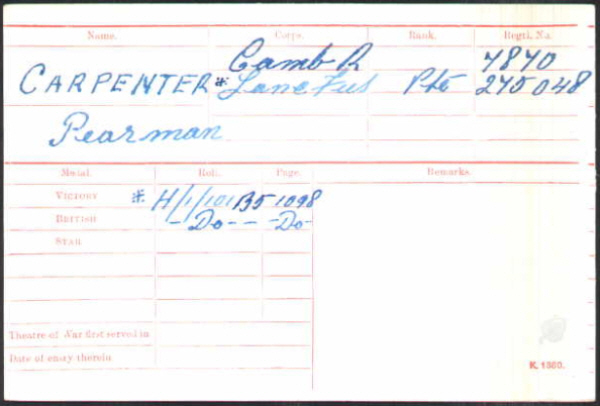 Name. Corps. Rank. Regtl. No.
Camb R 7870
CARPENTER * Lanc Fus Pte 275048
Pearman
Medal. Roll. Page. Remarks.
VICTORY * H/1/101B5 1098
BRITISH -Do-- -Do-
STAR
Theatre of War first served in
Date of entry therein
K. 1380.